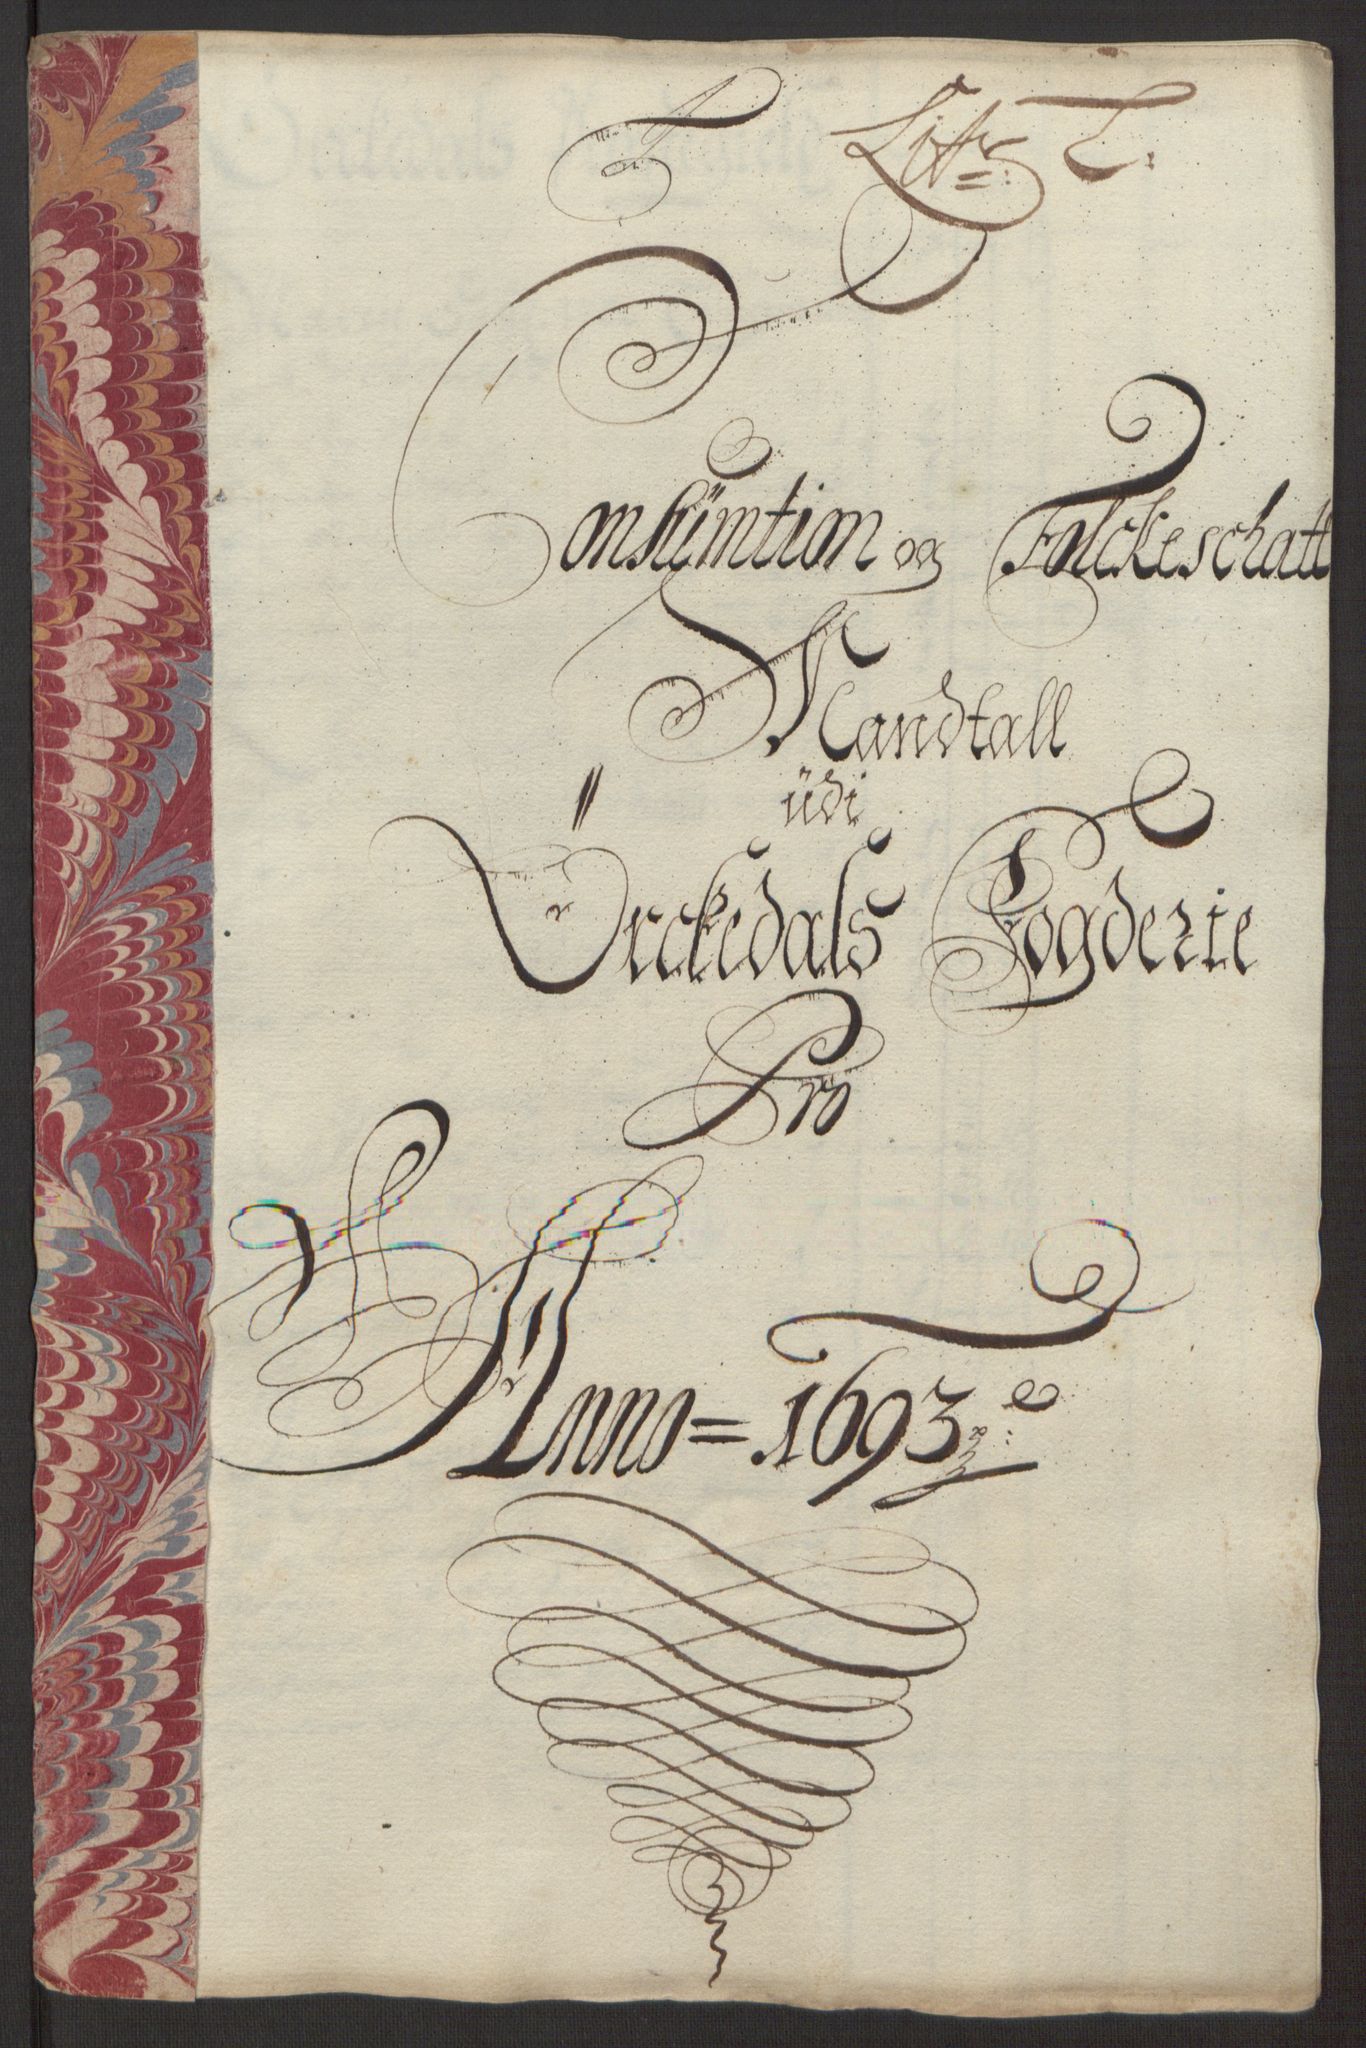 Littr: T:
Consümtion og Folckeschatt
Mandtall
üdi
Örckedals Fogderie
Pro
Anno = 1693